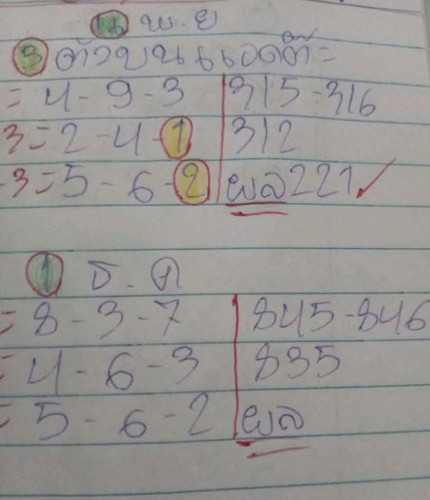 16 พ.ย
3 ตัวบน นอตตี๊=
= 4-9-3 315-316
3=2-4-1 312
-3=5-6-2 ผล 221 ✓
1 ธ.ค
= 8-3-7 845-846
= 4-6-3 835
= 5-6-2 ผล